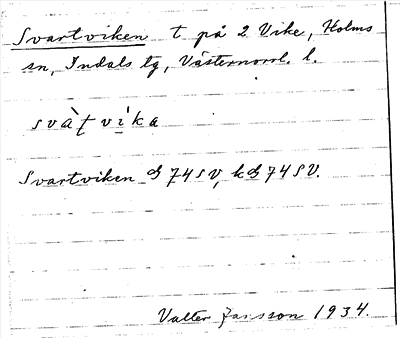 Svartviken t. på 2 Vike, Holms
sn, Indals tg, Västernorrl. l.
svàṭ vi̍ka
Svartviken 74 SV, k 74 SV.
Valter Jansson 1934.